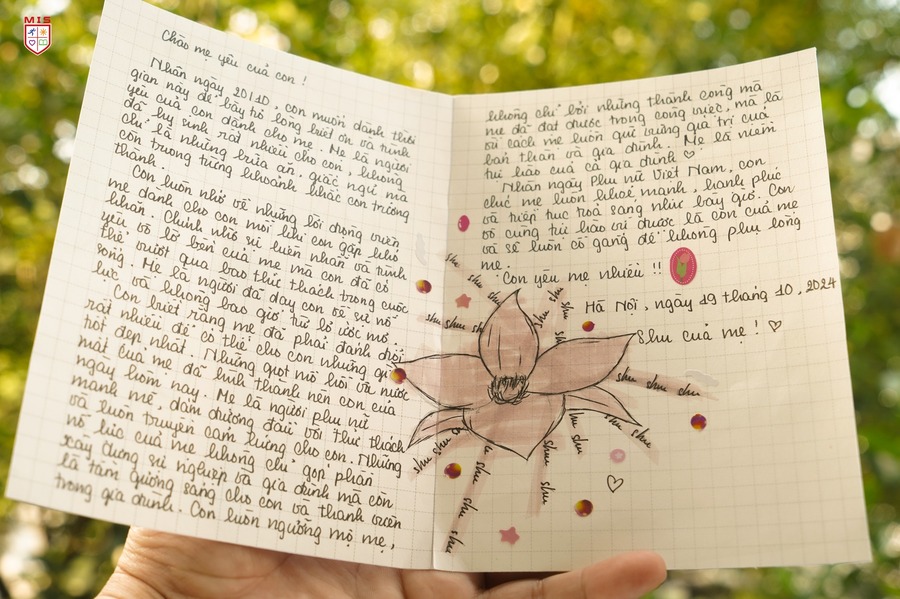 MIS
Chào mẹ yêu của con !
Nhân ngày 20/10, con muốn dành thời
gian này để bày tỏ lòng biết ơn và tình
yêu của con dành cho mẹ. Mẹ là người
đã hy sinh rất nhiều cho con, không
chỉ là những bữa ăn, giấc ngủ mà
còn trong từng khoảnh khắc con trưởng
thành.
Con luôn nhớ về những lời động viên
mẹ dành cho con mỗi khi con gặp khó
khăn. Chính nhờ sự kiên nhẫn và tình
yêu vô bờ bến của mẹ mà con đã có
thể vượt qua bao thử thách trong cuộc
sống. Mẹ là người đã dạy con về sự nỗ
lực và không bao giờ từ bỏ ước mơ.
Con biết rằng mẹ đã phải đánh đổi
rất nhiều để có thể cho con những gì
tốt đẹp nhất. Những giọt mồ hôi và nước
mắt của mẹ đã hình thành nên con của
ngày hôm nay. Mẹ là người phụ nữ
mạnh mẽ, đảm đương đầu với thử thách
và luôn truyền cảm hứng cho con. Những
nỗ lực của mẹ không chỉ góp phần
xây dựng sự nghiệp và gia đình mà còn
là tấm gương sáng cho con và thành viên
trong gia đình. Con luôn ngưỡng mộ mẹ,
không chỉ bởi những thành công mà
mẹ đã đạt được trong công việc, mà là
vì cách mẹ luôn giữ vững giá trị của
bản thân và gia đình. Mẹ là niềm
tự hào của cả gia đình ♡.
Nhân ngày Phụ nữ Việt Nam, con
chúc mẹ luôn khoẻ mạnh, hạnh phúc
và tiếp tục toả sáng như bây giờ. Con
vô cùng tự hào vì được là con của mẹ
và sẽ luôn cố gắng để không phụ lòng
mẹ.
Con yêu mẹ nhiều !!
Hà Nội, ngày 19 tháng 10, 2024
Shu của mẹ ! ♡
shu shu
shu shu
shu shu
shu shu
shu shu sh
shu shu shu
shu shu
shu shu
shu shu
shu shu
shu shu
shu